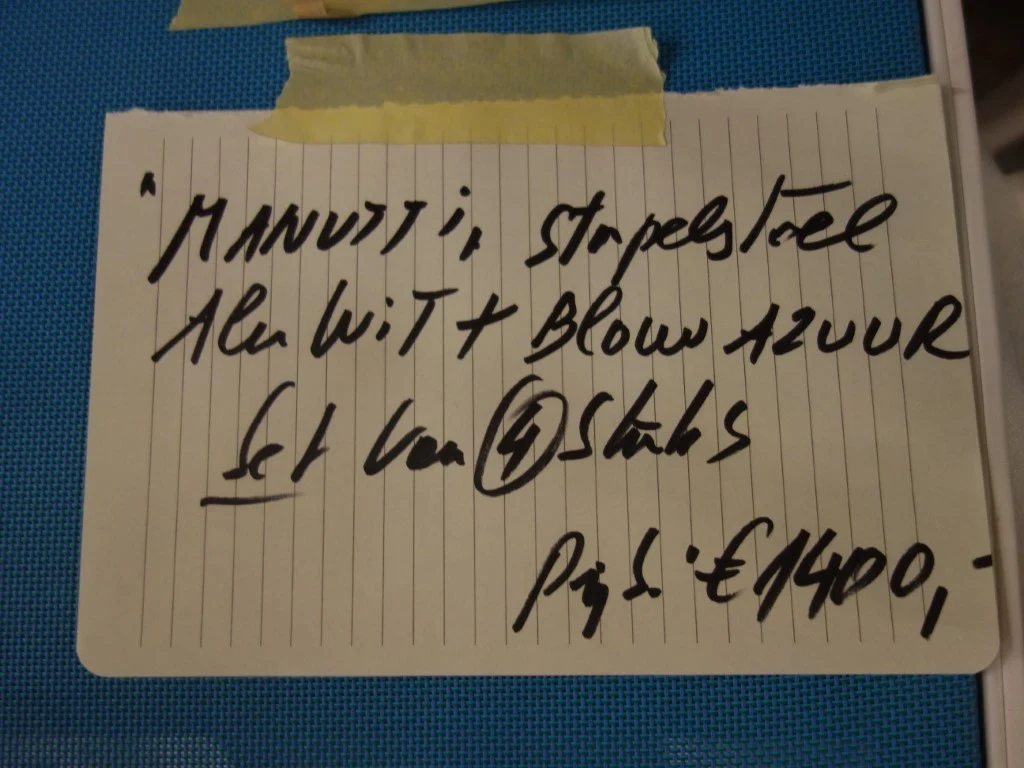 "MANUTTI, stapelstoel
Alu WiT + Blauw AZUUR
Set van 4 stuks
Prijs: € 1400,-